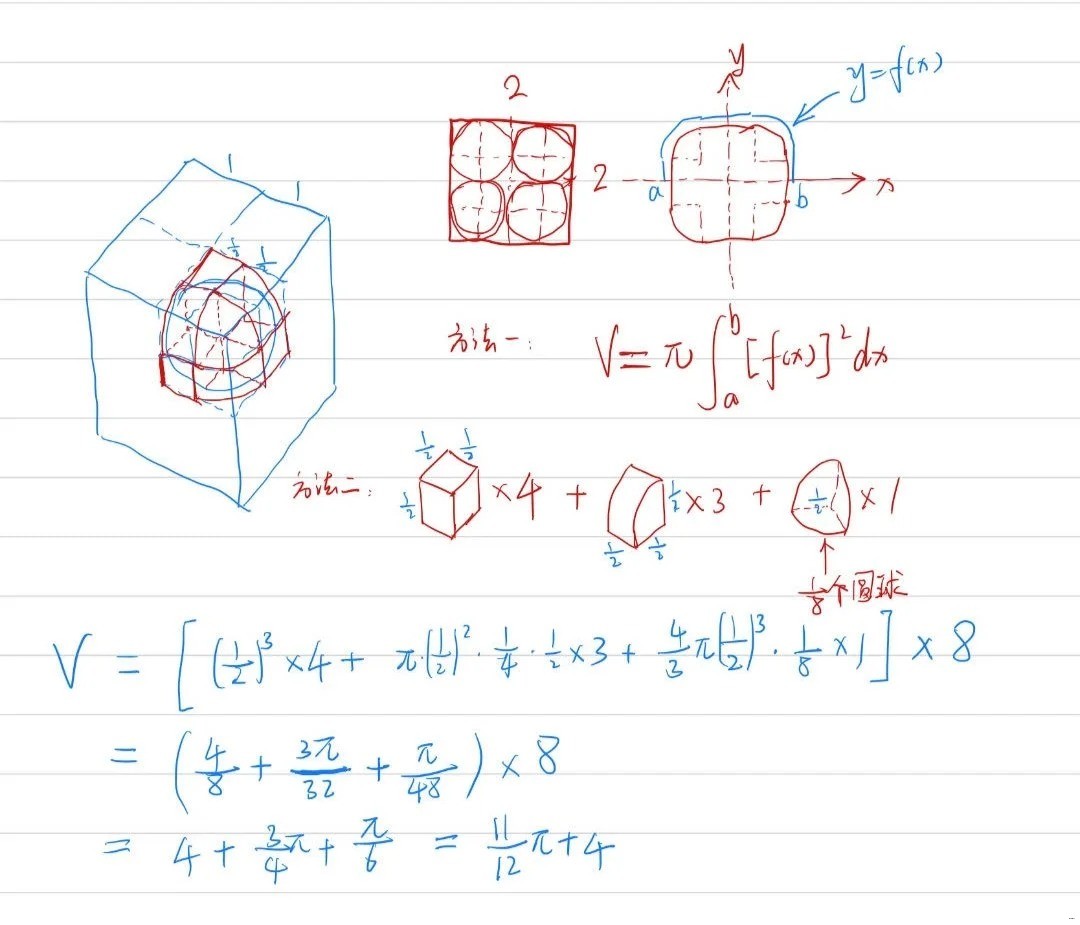 2
2
y
y=f(x)
x
a
b
1
1
1/2
1/2
方法一: V = π∫_a^b [f(x)]² dx
方法二: 1/2 1/2 1/2 ×4 + 1/2 1/2 1/2 ×3 + 1/2 ×1
1/8个圆球
V = [(1/2)³ ×4 + π·(1/2)²·1/4·1/2 ×3 + 4/3 π(1/2)³·1/8 ×1] × 8
= (4/8 + 3π/32 + π/48) × 8
= 4 + 3/4 π + π/6 = 11/12 π + 4